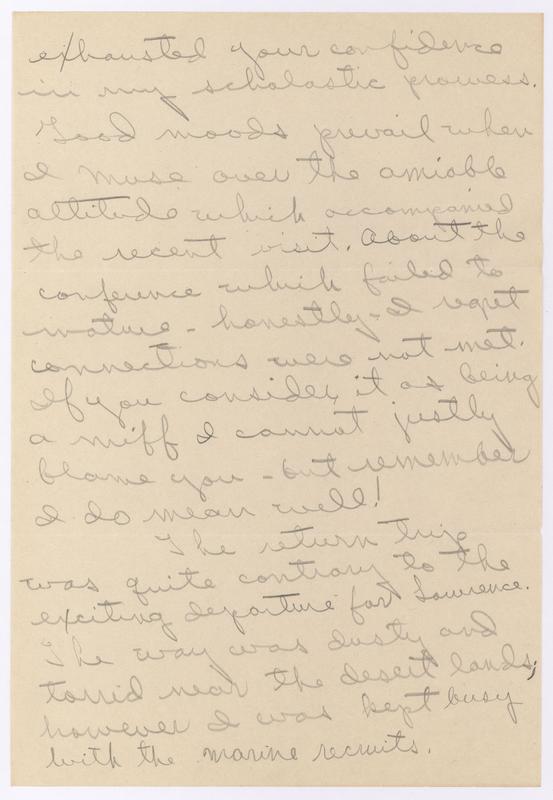 exhausted your confidence
in my scholastic prowess.
Good moods prevail when
I muse over the amiable
attitude which accompanied
the recent visit. About the
conference which failed to
mature - honestly - I regret
connections were not met.
If you consider it as being
a miff I cannot justly
blame you - but remember
I do mean well!
The return trip
was quite contrary to the
exciting departure for Lawrence.
The way was dusty and
torrid near the desert lands;
however I was kept busy
with the marine recruits.